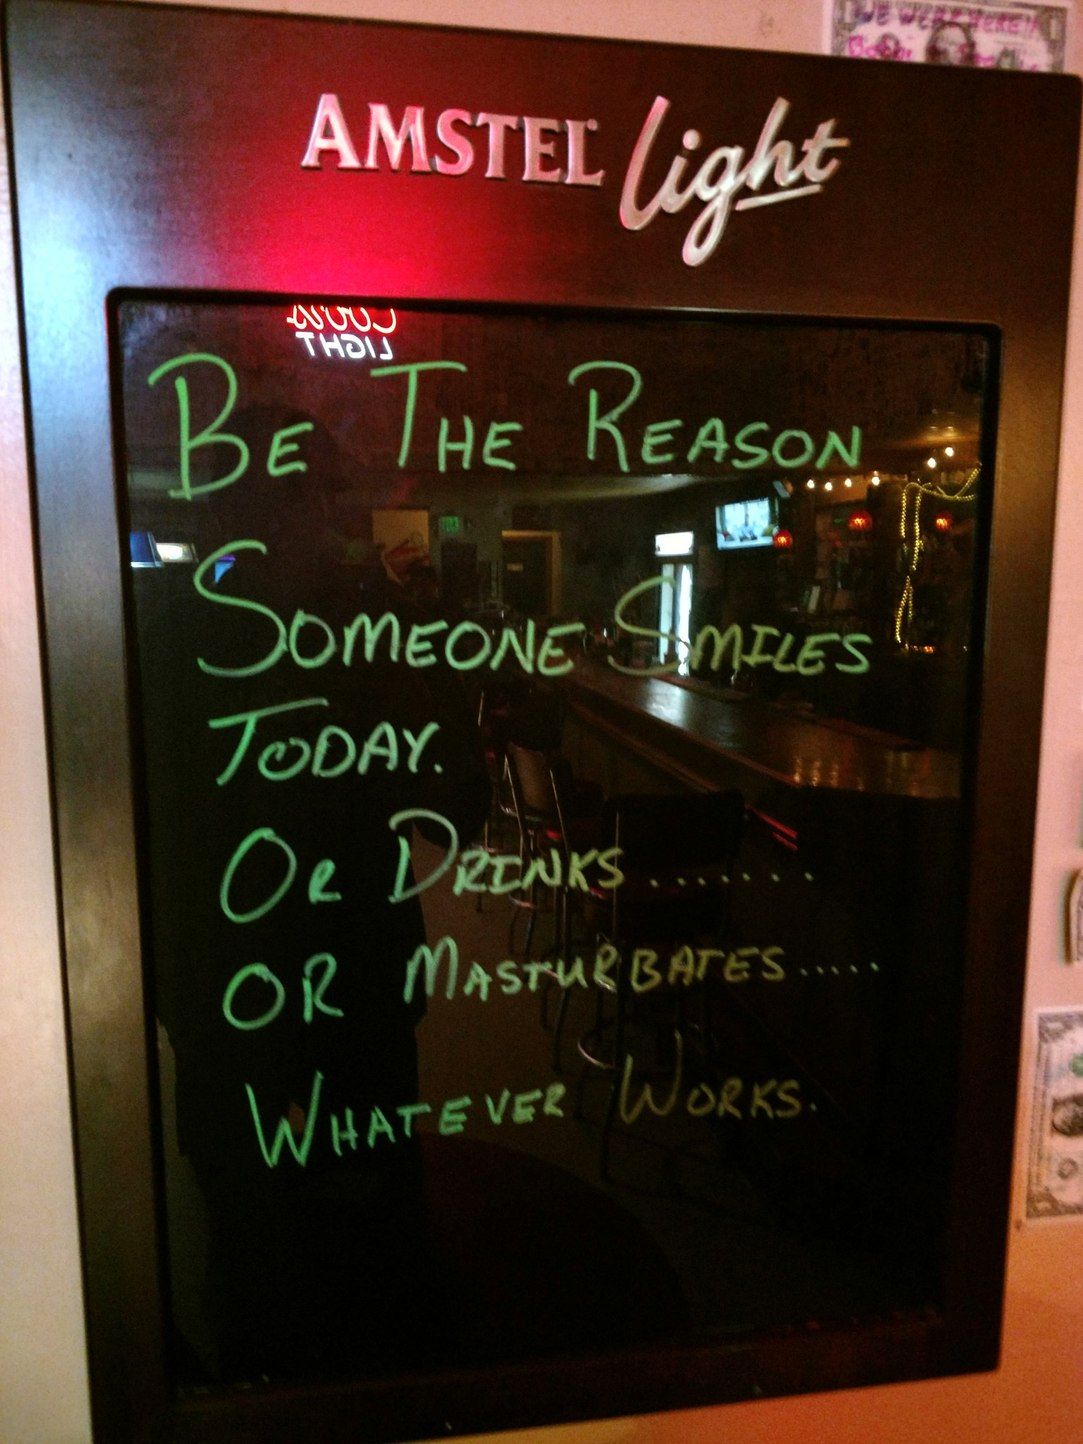 WE WERE HERE!!
AMSTEL light
COORS
LIGHT
BE THE REASON
SOMEONE SMILES
TODAY.
OR DRINKS.......
OR MASTURBATES.....
WHATEVER WORKS.